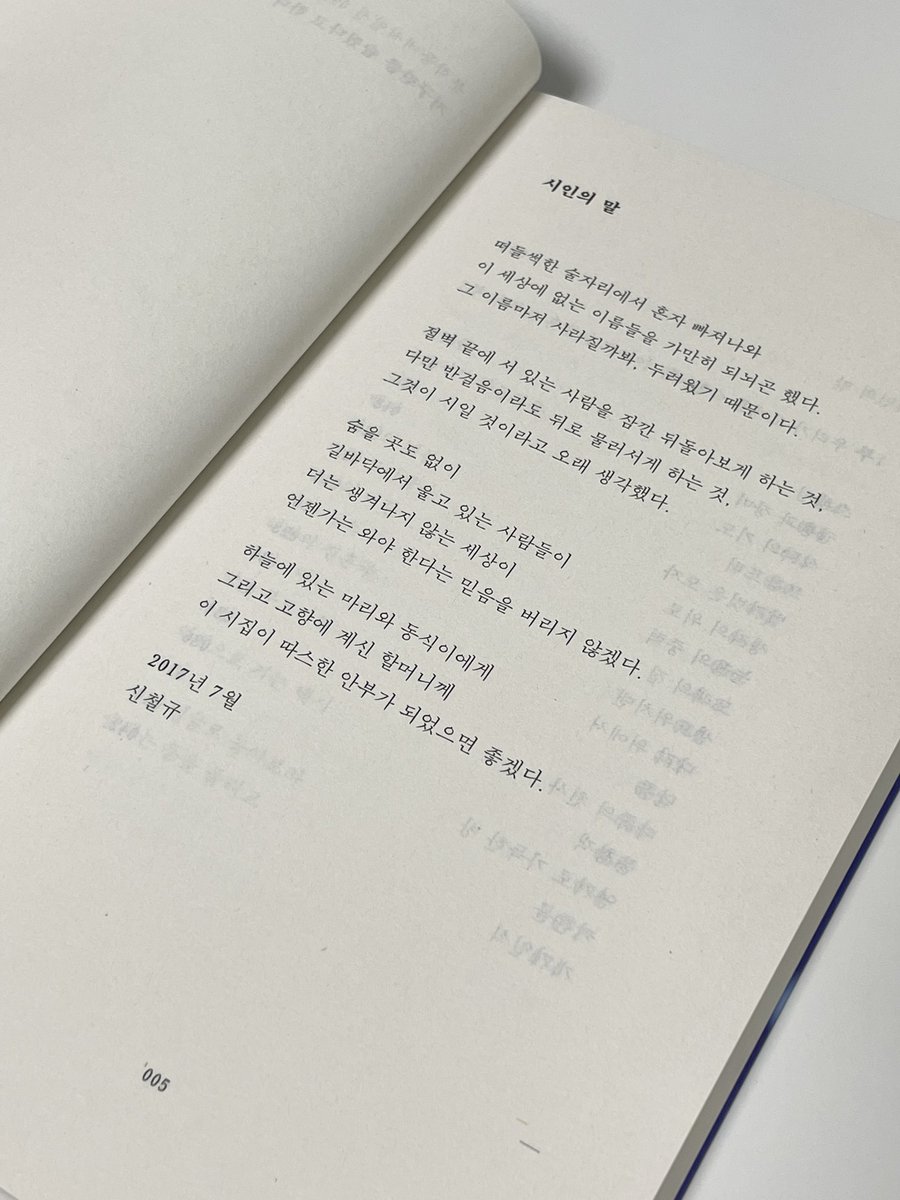 시인의 말
떠들썩한 술자리에서 혼자 빠져나와
이 세상에 없는 이름들을 가만히 되뇌곤 했다.
그 이름마저 사라질까봐, 두려웠기 때문이다.
절벽 끝에 서 있는 사람을 잠깐 뒤돌아보게 하는 것,
다만 반걸음이라도 뒤로 물러서게 하는 것,
그것이 시일 것이라고 오래 생각했다.
숨을 곳도 없이
길바닥에서 울고 있는 사람들이
더는 생겨나지 않는 세상이
언젠가는 와야 한다는 믿음을 버리지 않겠다.
하늘에 있는 마리와 동식이에게
그리고 고향에 계신 할머니께
이 시집이 따스한 안부가 되었으면 좋겠다.
2017년 7월
신철규
005